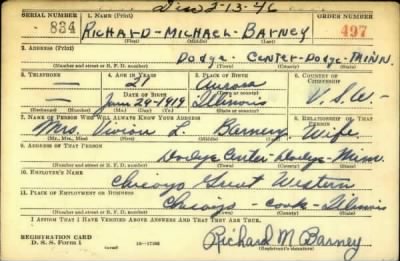 Died 2-13-46
SERIAL NUMBER 1. NAME (Print) ORDER NUMBER
834 RICHARD - MICHAEL - BARNEY 497
(First) (Middle) (Last)
2. ADDRESS (Print)
Dodge Center - Dodge - MINN.
(Number and street or R. F. D. number) (Town) (County) (State)
3. TELEPHONE 4. AGE IN YEARS 5. PLACE OF BIRTH 6. COUNTRY OF CITIZENSHIP
21 Aurora
DATE OF BIRTH (Town or county)
Jan 29-1919 Illinois U.S.A.
(Exchange) (Number) (Mo.) (Day) (Yr.) (State or country)
7. NAME OF PERSON WHO WILL ALWAYS KNOW YOUR ADDRESS 8. RELATIONSHIP OF THAT PERSON
Mrs. Vivian L. Barney Wife
(Mr., Mrs., Miss) (First) (Middle) (Last)
9. ADDRESS OF THAT PERSON
Dodge Center - Dodge - Minn.
(Number and street or R. F. D. number) (Town) (County) (State)
10. EMPLOYER'S NAME
Chicago Great Western
11. PLACE OF EMPLOYMENT OR BUSINESS
Chicago - Cook - Illinois
(Number and street or R. F. D. number) (Town) (County) (State)
I AFFIRM THAT I HAVE VERIFIED ABOVE ANSWERS AND THAT THEY ARE TRUE.
REGISTRATION CARD
D. S. S. Form 1
Richard M Barney
(Registrant's signature)